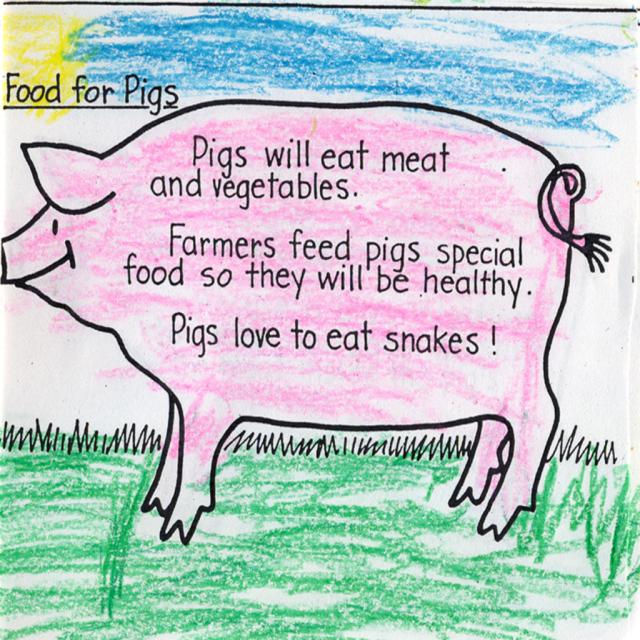 Food for Pigs
Pigs will eat meat
and vegetables.
Farmers feed pigs special
food so they will be healthy.
Pigs love to eat snakes !